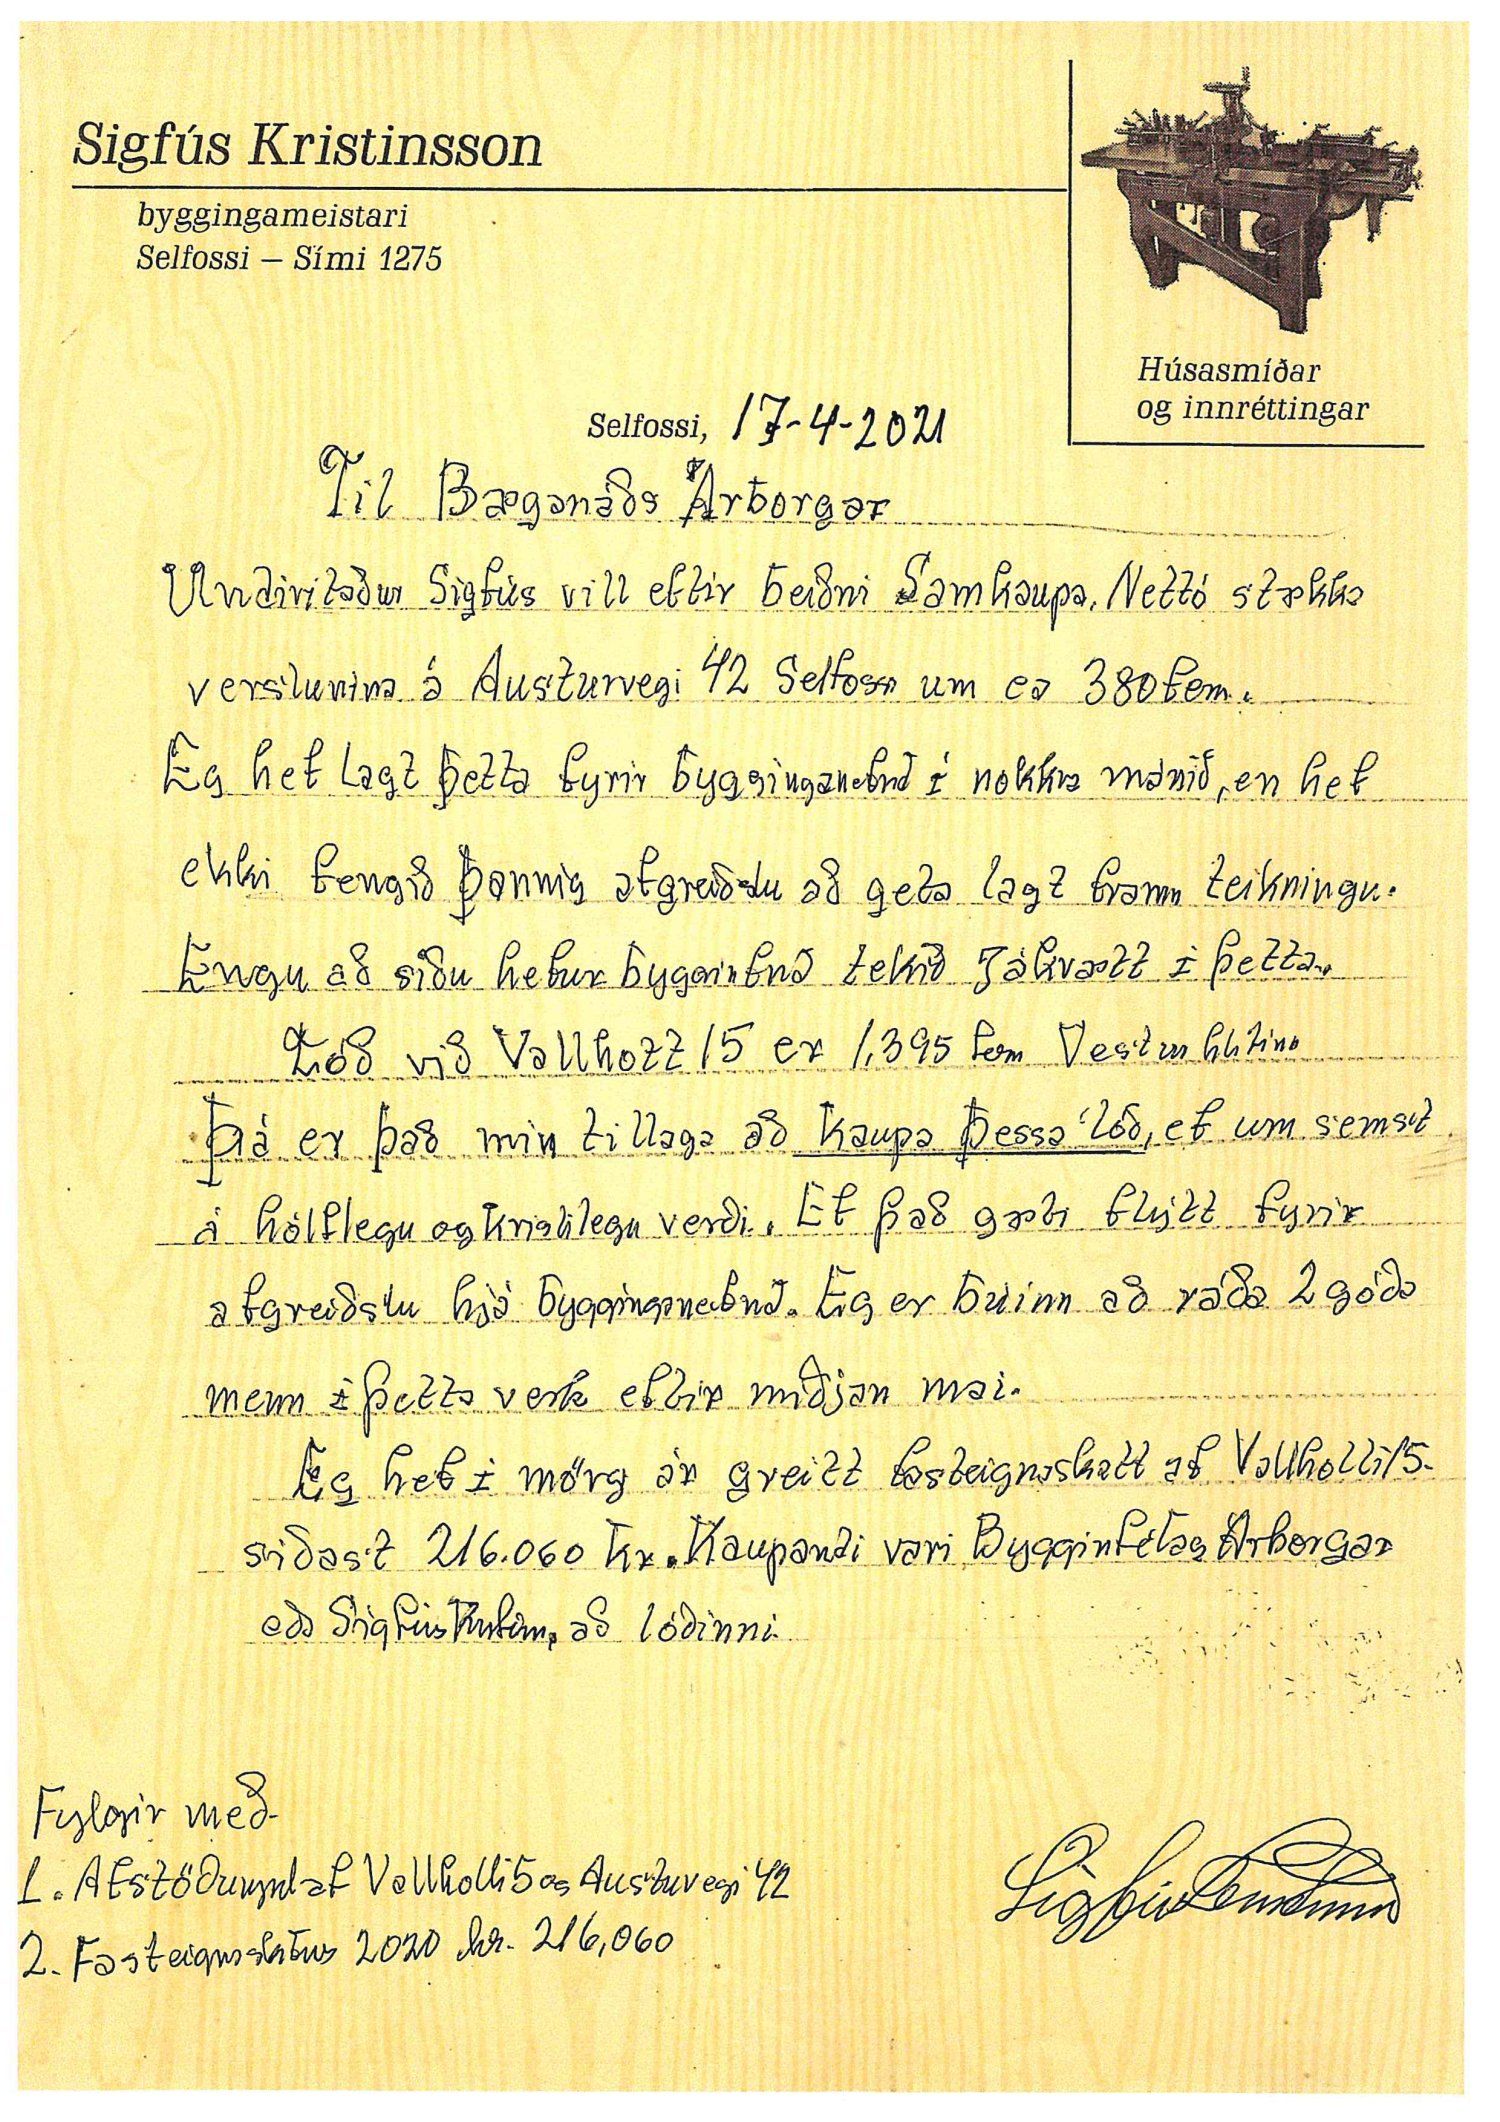 Sigfús Kristinsson
byggingameistari
Selfossi – Sími 1275
Húsasmíðar
og innréttingar
Selfossi, 17-4-2021
Til Bæganáðs Árborgar
Undiritaður Sigfús vill eftir beiðni Samkaupa, Nettó stækka
verslunina á Austurvegi 42 Selfoss um ca 380 fem.
Eg hef lagt þetta fyrir bygginganefnd í nokkra mánið, en hef
ekki fengið þannig afgreiðslu að geta lagt framm teikningu.
Engu að síðu hefur byggginfnd tekið jákvætt í þetta.
Lóð við Vallhott 15 er 1,395 fem
Þá er það min tillaga að kaupa þessa lóð, ef um semst
á hólflegu og kristilegu verði. Ef það gæti flýtt fyrir
afgreiðslu hjá bygginganefnd. Eg er búinn að ráða 2 góða
menn í þetta verk eftir miðjan mai.
Eg hef í mörg ár greitt fasteignaskatt af Vallholti 15.
síðast 216.060 kr. Kaupandi væri Bygginfélag Árborgar
eða Sigfús að lóðinni.
Fylgir með-
1. Afstöðumynd af Vallholti 5 og Austuvegi 42
2. Fasteignaskattur 2020 kr. 216,060